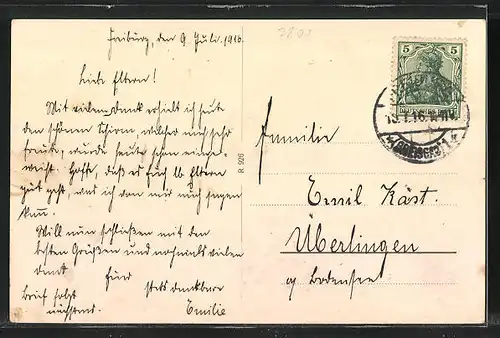 Freiburg, den 9. Juli. 1916.
Liebe Eltern!
Mit vielem Dank erhielt ich heute
den schönen Schirm, welcher mich sehr
freut, wurde heute schon einge-
weiht. Hoffe, daß es Euch lb Eltern
gut geht, was ich von mir auch sagen
kann.
Will nun schließen mit den
besten Grüßen und nochmals vielen
Dank
Eure
stets dankbare
Brief folgt
nächstens.
Emilie
R 926
5 5
16
Familie
Emil Käst.
Überlingen
a/ Bodensee